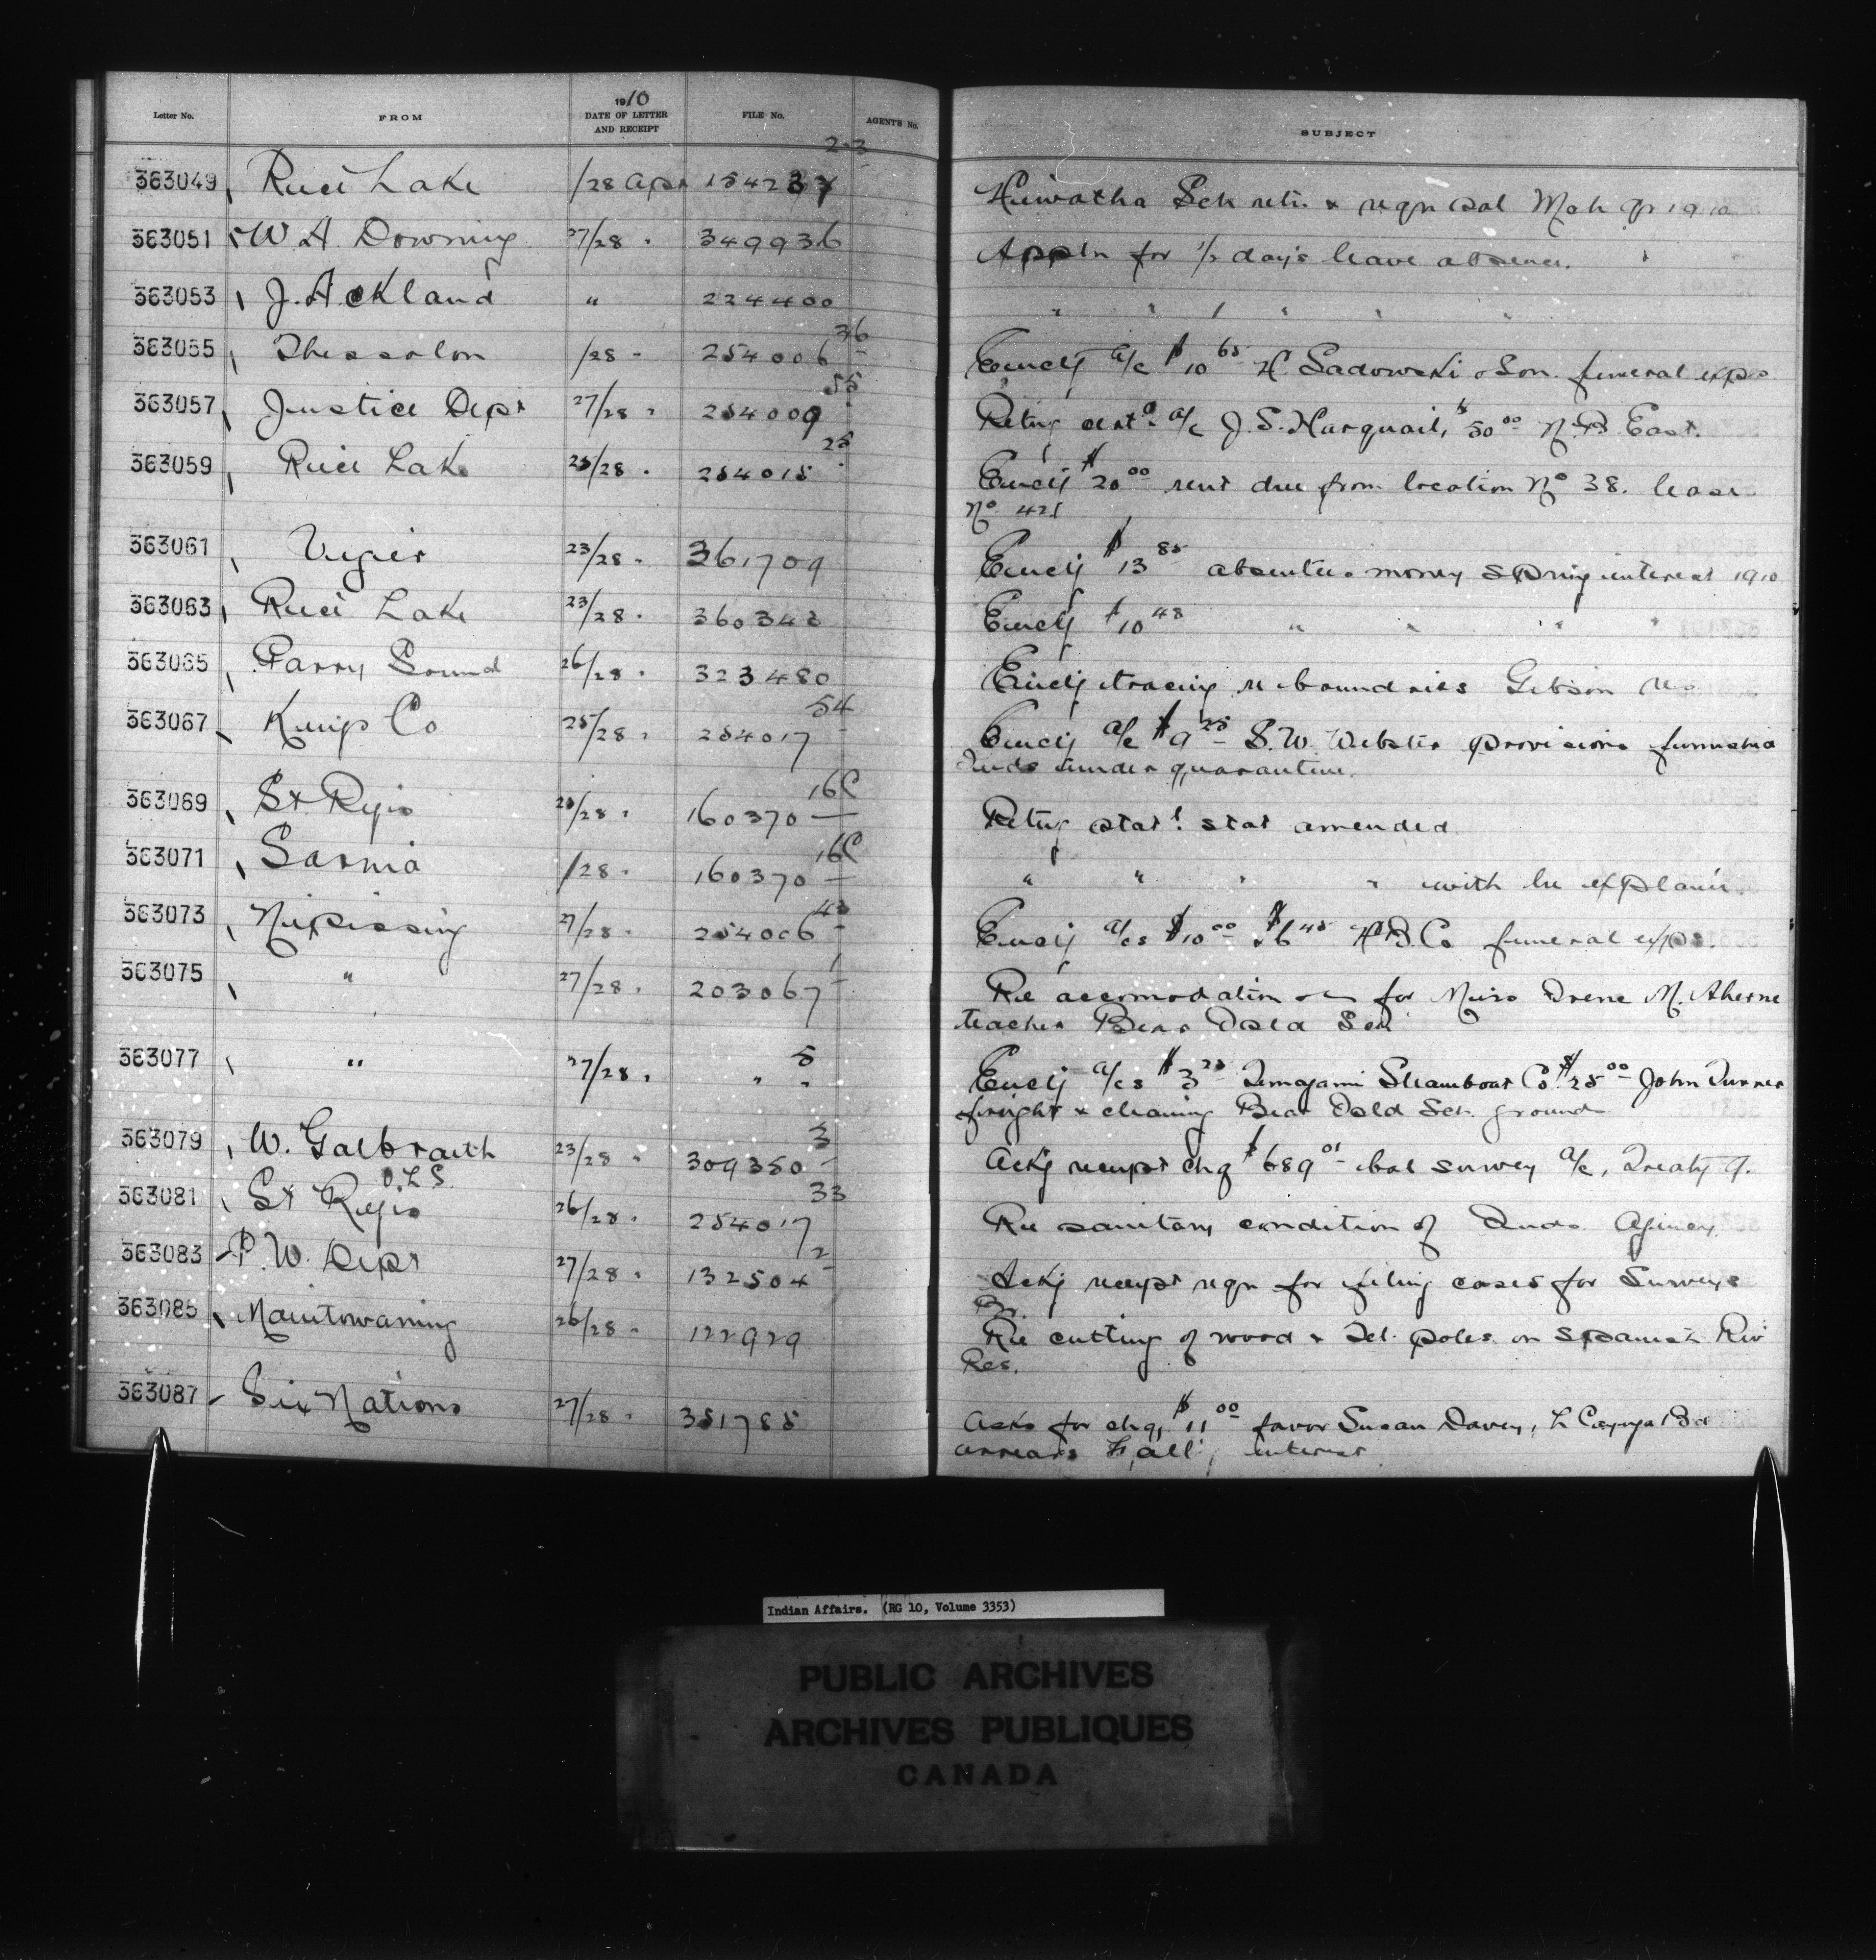 Letter No. FROM 1910 DATE OF LETTER AND RECEIPT FILE No. AGENT'S No. SUBJECT
363049 Rice Lake /28 Apr 154237 2-3 Hiwatha Sch retn & reqn Sal Mch qr 1910
363051 W. A. Downing 27/28 " 349936 Appln for 1/2 day's leave absence.
363053 J. Ackland " 224400 " " 1 " " "
363055 Thessalon /28 " 254006 36 Encly a/c $10 65 H Sadowski & Son. funeral exps
363057 Justice Dept 27/28 " 254009 55 Retng a/c J. S. Harquail, $50 00 N.B. East.
363059 Rice Lake 25/28 " 254015 25 Encly $20 00 rent due from location No 38. lease
No 421
363061 Vigier 23/28 " 361709 Encly $13 85 absentee money Spring interest 1910
363063 Rice Lake 23/28 " 360342 Encly $10 48 " " " "
363065 Parry Sound 26/28 " 323480 Encly tracing re boundries Gibson Res
363067 Kings Co 25/28 " 254017 54 Encly a/c $9 25 S. W. Webster provisions furnishd
Inds under quarantine.
363069 St Regis 26/28 " 160370 16C Retng stat amended
363071 Sarnia /28 " 160370 16C " " " " with he explain.
363073 Nipissing 27/28 " 254006 42 Encly a/cs $10 00 & $6 45 H B Co funeral exps.
363075 " 27/28 " 203067 1 Re accomodation for Miss Irene M. Aherne
teacher Bear Isld Sch
363077 " 27/28 " " 5 Encly a/cs $3 25 Temagami Steamboat Co. $25 00 John Turner
freight & cleaning Bear Isld Sch. grounds
363079 W. Galbraith O.L.S. 23/28 " 309350 3 Ackg receipt chq $689 01 bal survey a/c, Treaty 9.
363081 St Regis 26/28 " 254017 33 Re sanitary condition of Inds. Agency
363083 P. W. Dept 27/28 " 132504 2 Ackg receipt reqn for filing cases for Surveys
Br.
363085 Manitowaning 26/28 " 122929 Re cutting of wood & Tel. poles on Spanish Riv
Res.
363087 Six Nations 27/28 " 351785 Asks for chq, $11 00 favor Susan Davey, L Cayuga Bd
arrears Fall interest
Indian Affairs. (RG 10, Volume 3353)
PUBLIC ARCHIVES
ARCHIVES PUBLIQUES
CANADA